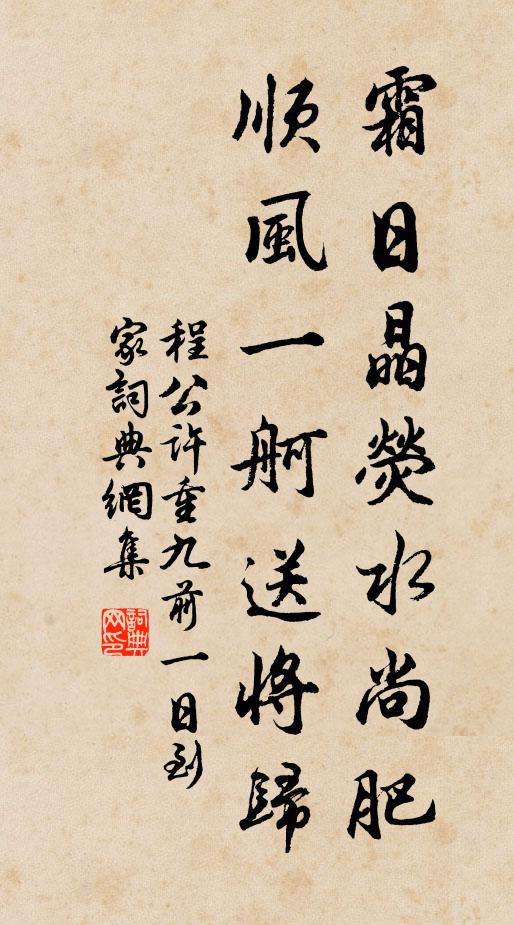 霜日晶熒水尚肥
順風一舸送將歸
程公許重九前一日到
家詞典網集
詞典
网印